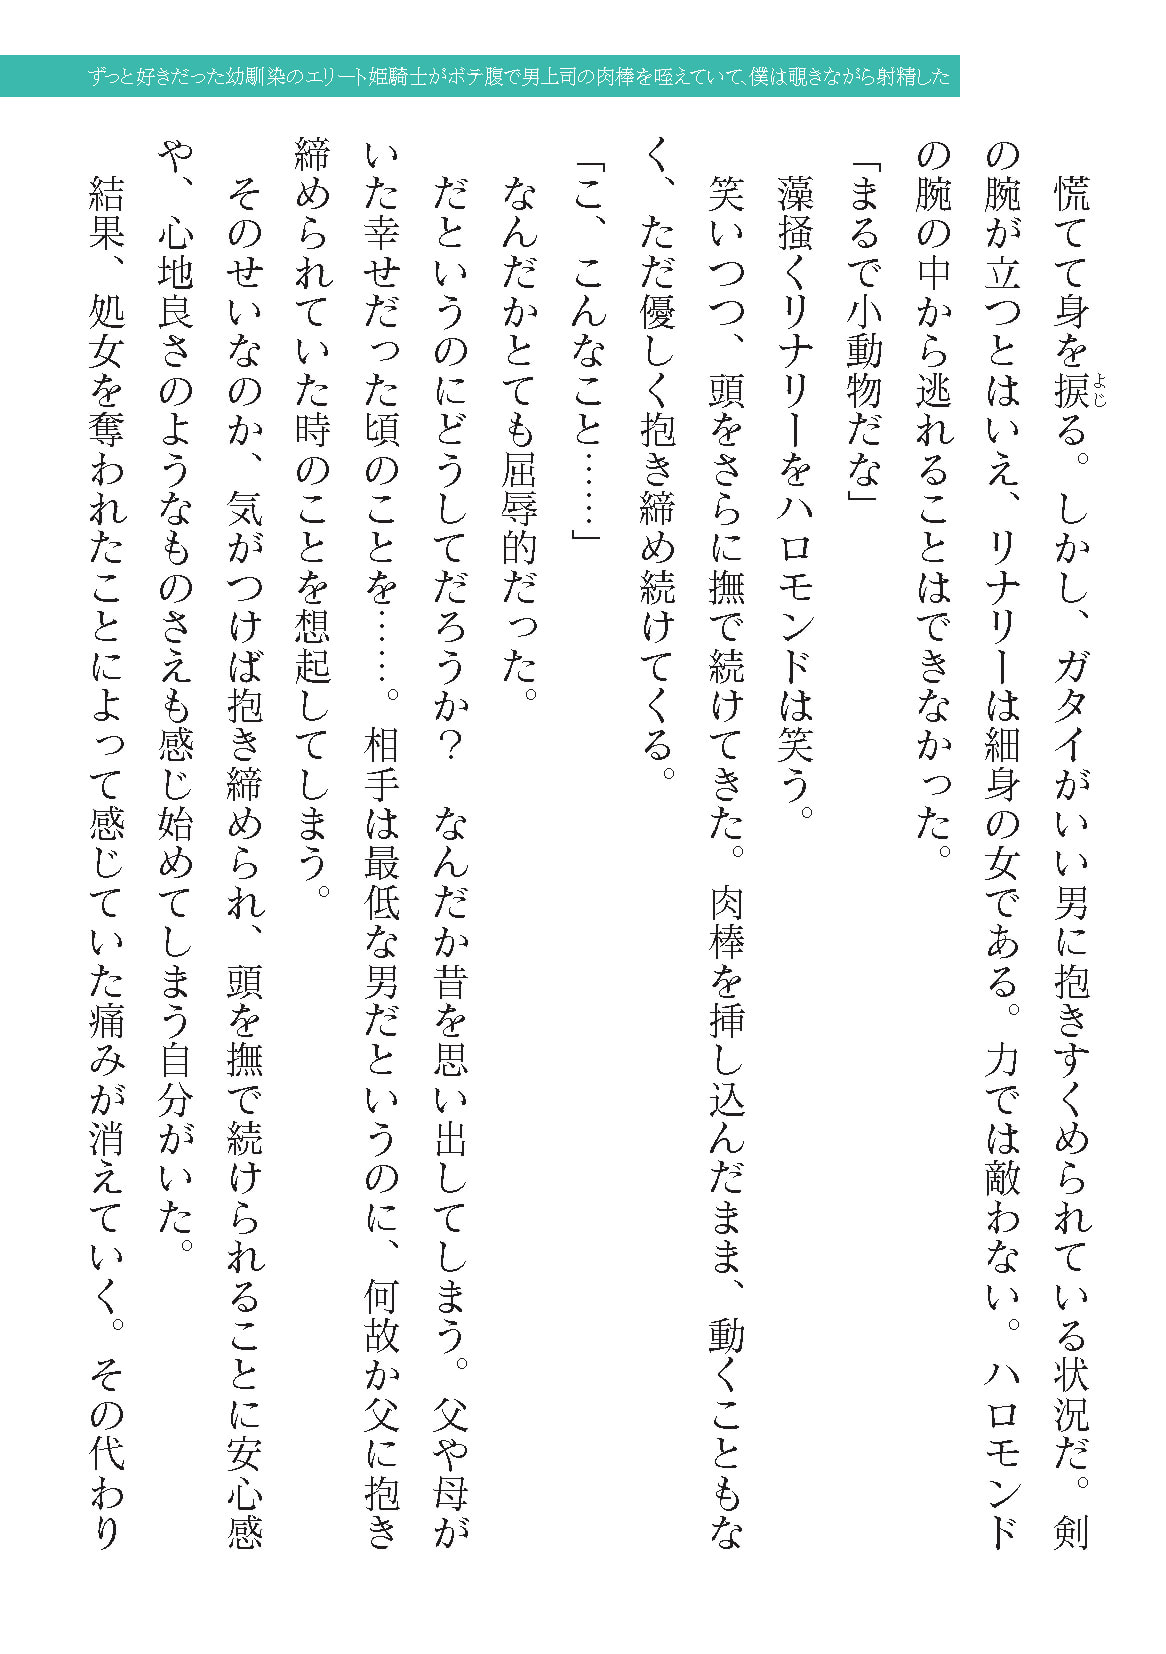 ずっと好きだった幼馴染のエリート姫騎士がボテ腹で男上司の肉棒を咥えていて、僕は覗きながら射精した
慌てて身を捩る。しかし、ガタイがいい男に抱きすくめられている状況だ。剣
よじ
の腕が立つとはいえ、リナリーは細身の女である。力では敵わない。ハロモンド
の腕の中から逃れることはできなかった。
「まるで小動物だな」
藻掻くリナリーをハロモンドは笑う。
笑いつつ、頭をさらに撫で続けてきた。肉棒を挿し込んだまま、動くこともな
く、ただ優しく抱き締め続けてくる。
「こ、こんなこと……」
なんだかとても屈辱的だった。
だというのにどうしてだろうか？　なんだか昔を思い出してしまう。父や母が
いた幸せだった頃のことを……。相手は最低な男だというのに、何故か父に抱き
締められていた時のことを想起してしまう。
そのせいなのか、気がつけば抱き締められ、頭を撫で続けられることに安心感
や、心地良さのようなものさえも感じ始めてしまう自分がいた。
結果、処女を奪われたことによって感じていた痛みが消えていく。その代わり